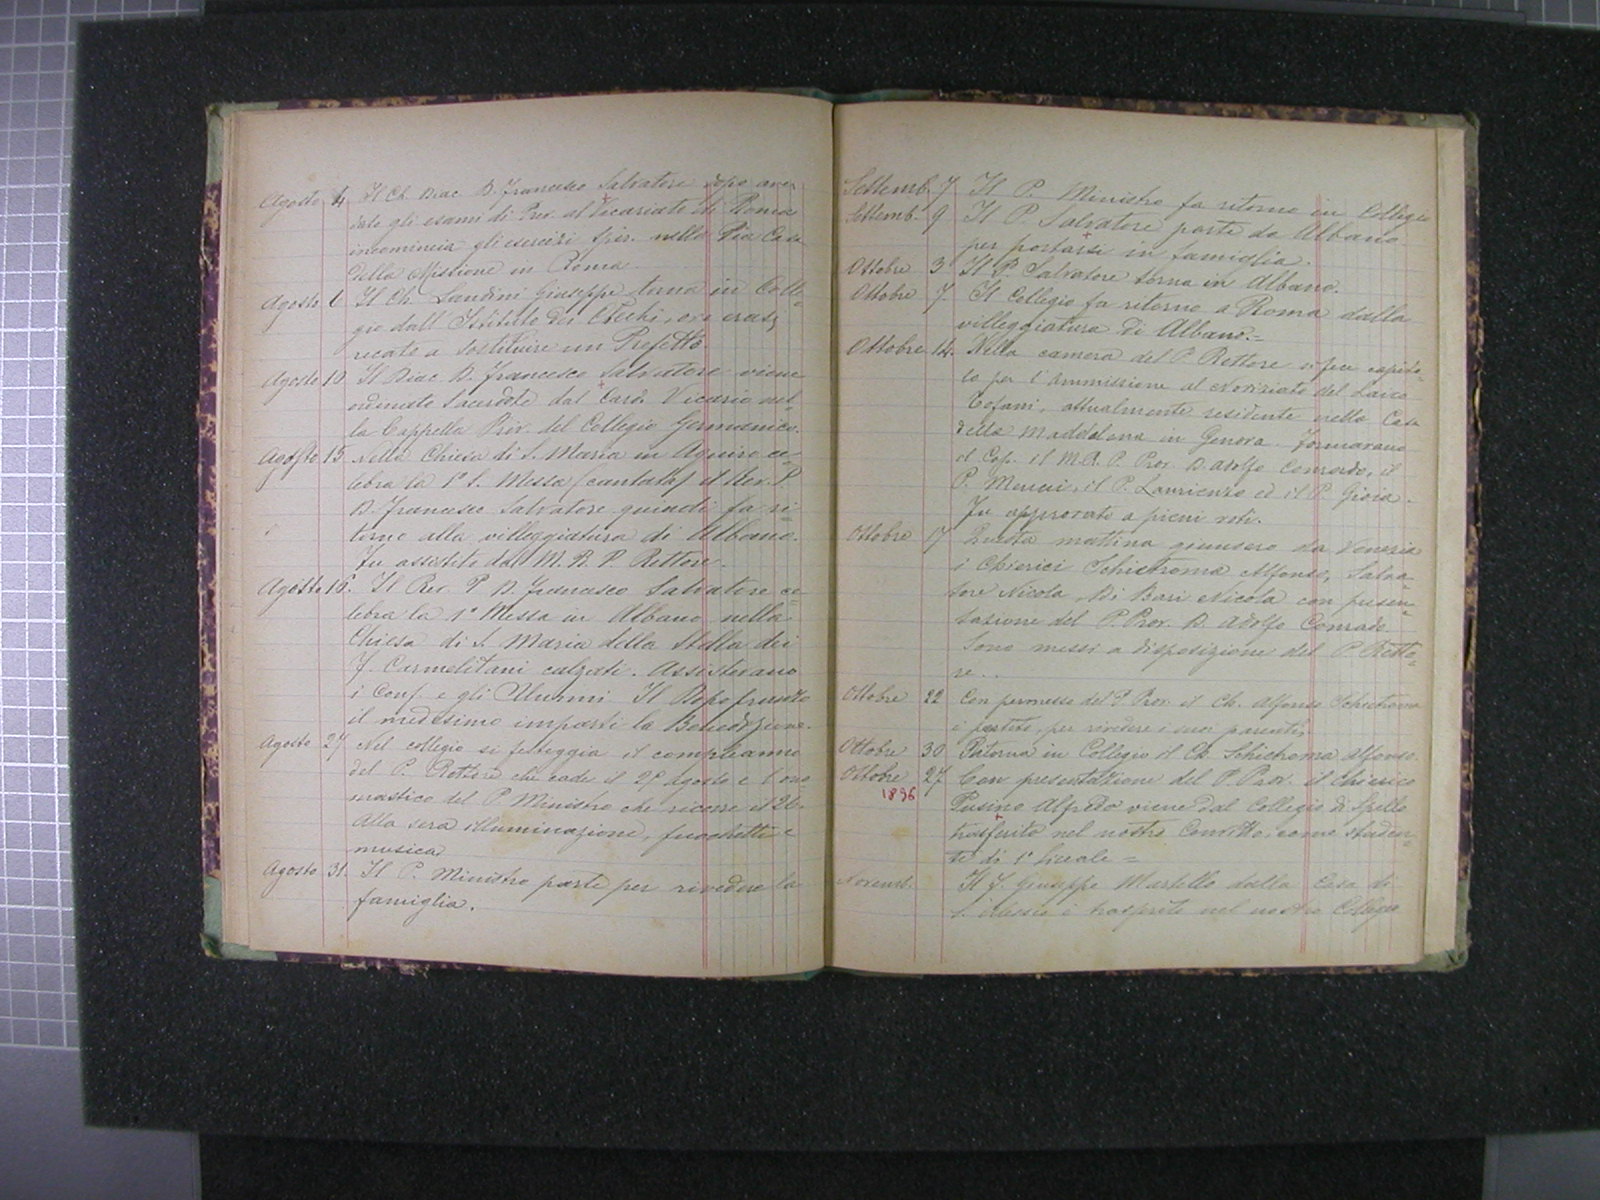 Agosto 4 Il Ch. Diac. D. Francesco Salvatore dopo aver
dato gli esami di Prev. al Vicariato di Roma
incomincia gli esercizi spir. nella Pia Casa
della Missione in Roma
Agosto 6 Il Ch. Landini Giuseppe torna in Colle-
gio dall'Istituto dei Ciechi, ove erasi
recato a sostituire un Prefetto
Agosto 10 Il Diac. D. Francesco Salvatore viene
ordinato Sacerdote dal Card. Vicario nel-
la Cappella Priv. del Collegio Germanico.
Agosto 15 Nella Chiesa di S. Maria in Aquiro ce-
lebra la 1ª S. Messa (cantata) il Rev. P.
D. Francesco Salvatore quindi fa ri-
torno alla villeggiatura di Albano.
Fu assistito dal M. R. P. Rettore.
Agosto 16. Il Rev. P. D. Francesco Salvatore ce-
lebra la 1ª Messa in Albano nella
Chiesa di S. Maria della Stella dei
F. Carmelitani calzati. Assisterano
i Conf. e gli Alunni Il Dopo pranzo
il medesimo impartì la Benedizione.
Agosto 27 Nel collegio si festeggia il compleanno
del P. Rettore che cade il Agosto e l'ono
mastico del P. Ministro che ricorre il 26.
Alla sera illuminazione, fuochetti e
musica
Agosto 31. Il P. Ministro parte per rivedere la
famiglia.
Settemb. 7 Il P. Ministro fa ritorno in Collegio
Settemb. 9 Il P. Salvatore parte da Albano
per portarsi in famiglia.
Ottobre 3 Il P. Salvatore torna in Albano.
Ottobre 7. Il Collegio fa ritorno a Roma dalla
villeggiatura di Albano.=
Ottobre 14. Nella camera del P. Rettore si fece capito-
lo per l'ammissione al Noviziato del Laico
Tofani, attualmente residente nella Casa
della Maddalena in Genova. Formarano
il Cap. il M. R. P. Prov. D. Adolfo Conrado, il
P. Muzzi, il P. Laurienzo ed il P. Gioia.
Fu approvato a pieni voti.
Ottobre 17 Questa mattina giunsero da Venezia
i Chierici Schistroma Alfonso, Salva-
tore Nicola, Di Bari Nicola con presen-
tazione del P. Prov. D. Adolfo Conrado.
Sono messi a disposizione del P. Retto-
re..
Ottobre 22 Con permesso del P. Prov. il Ch. Alfonso Schistroma
è partito, per rivedere i suoi parenti,
Ottobre 30 Ritorna in Collegio il Ch. Schistroma Alfonso.
Ottobre 27 Con presentazione del P. Prov. il Chierico
1896 Pusino Alfredo viene dal Collegio di Spello
trasferito nel nostro Convitto; come studen-
te di 1ª liceale =
Novemb. Il F. Giuseppe Martello dalla Casa di
S. Alessio è trasferito nel nostro Collegio